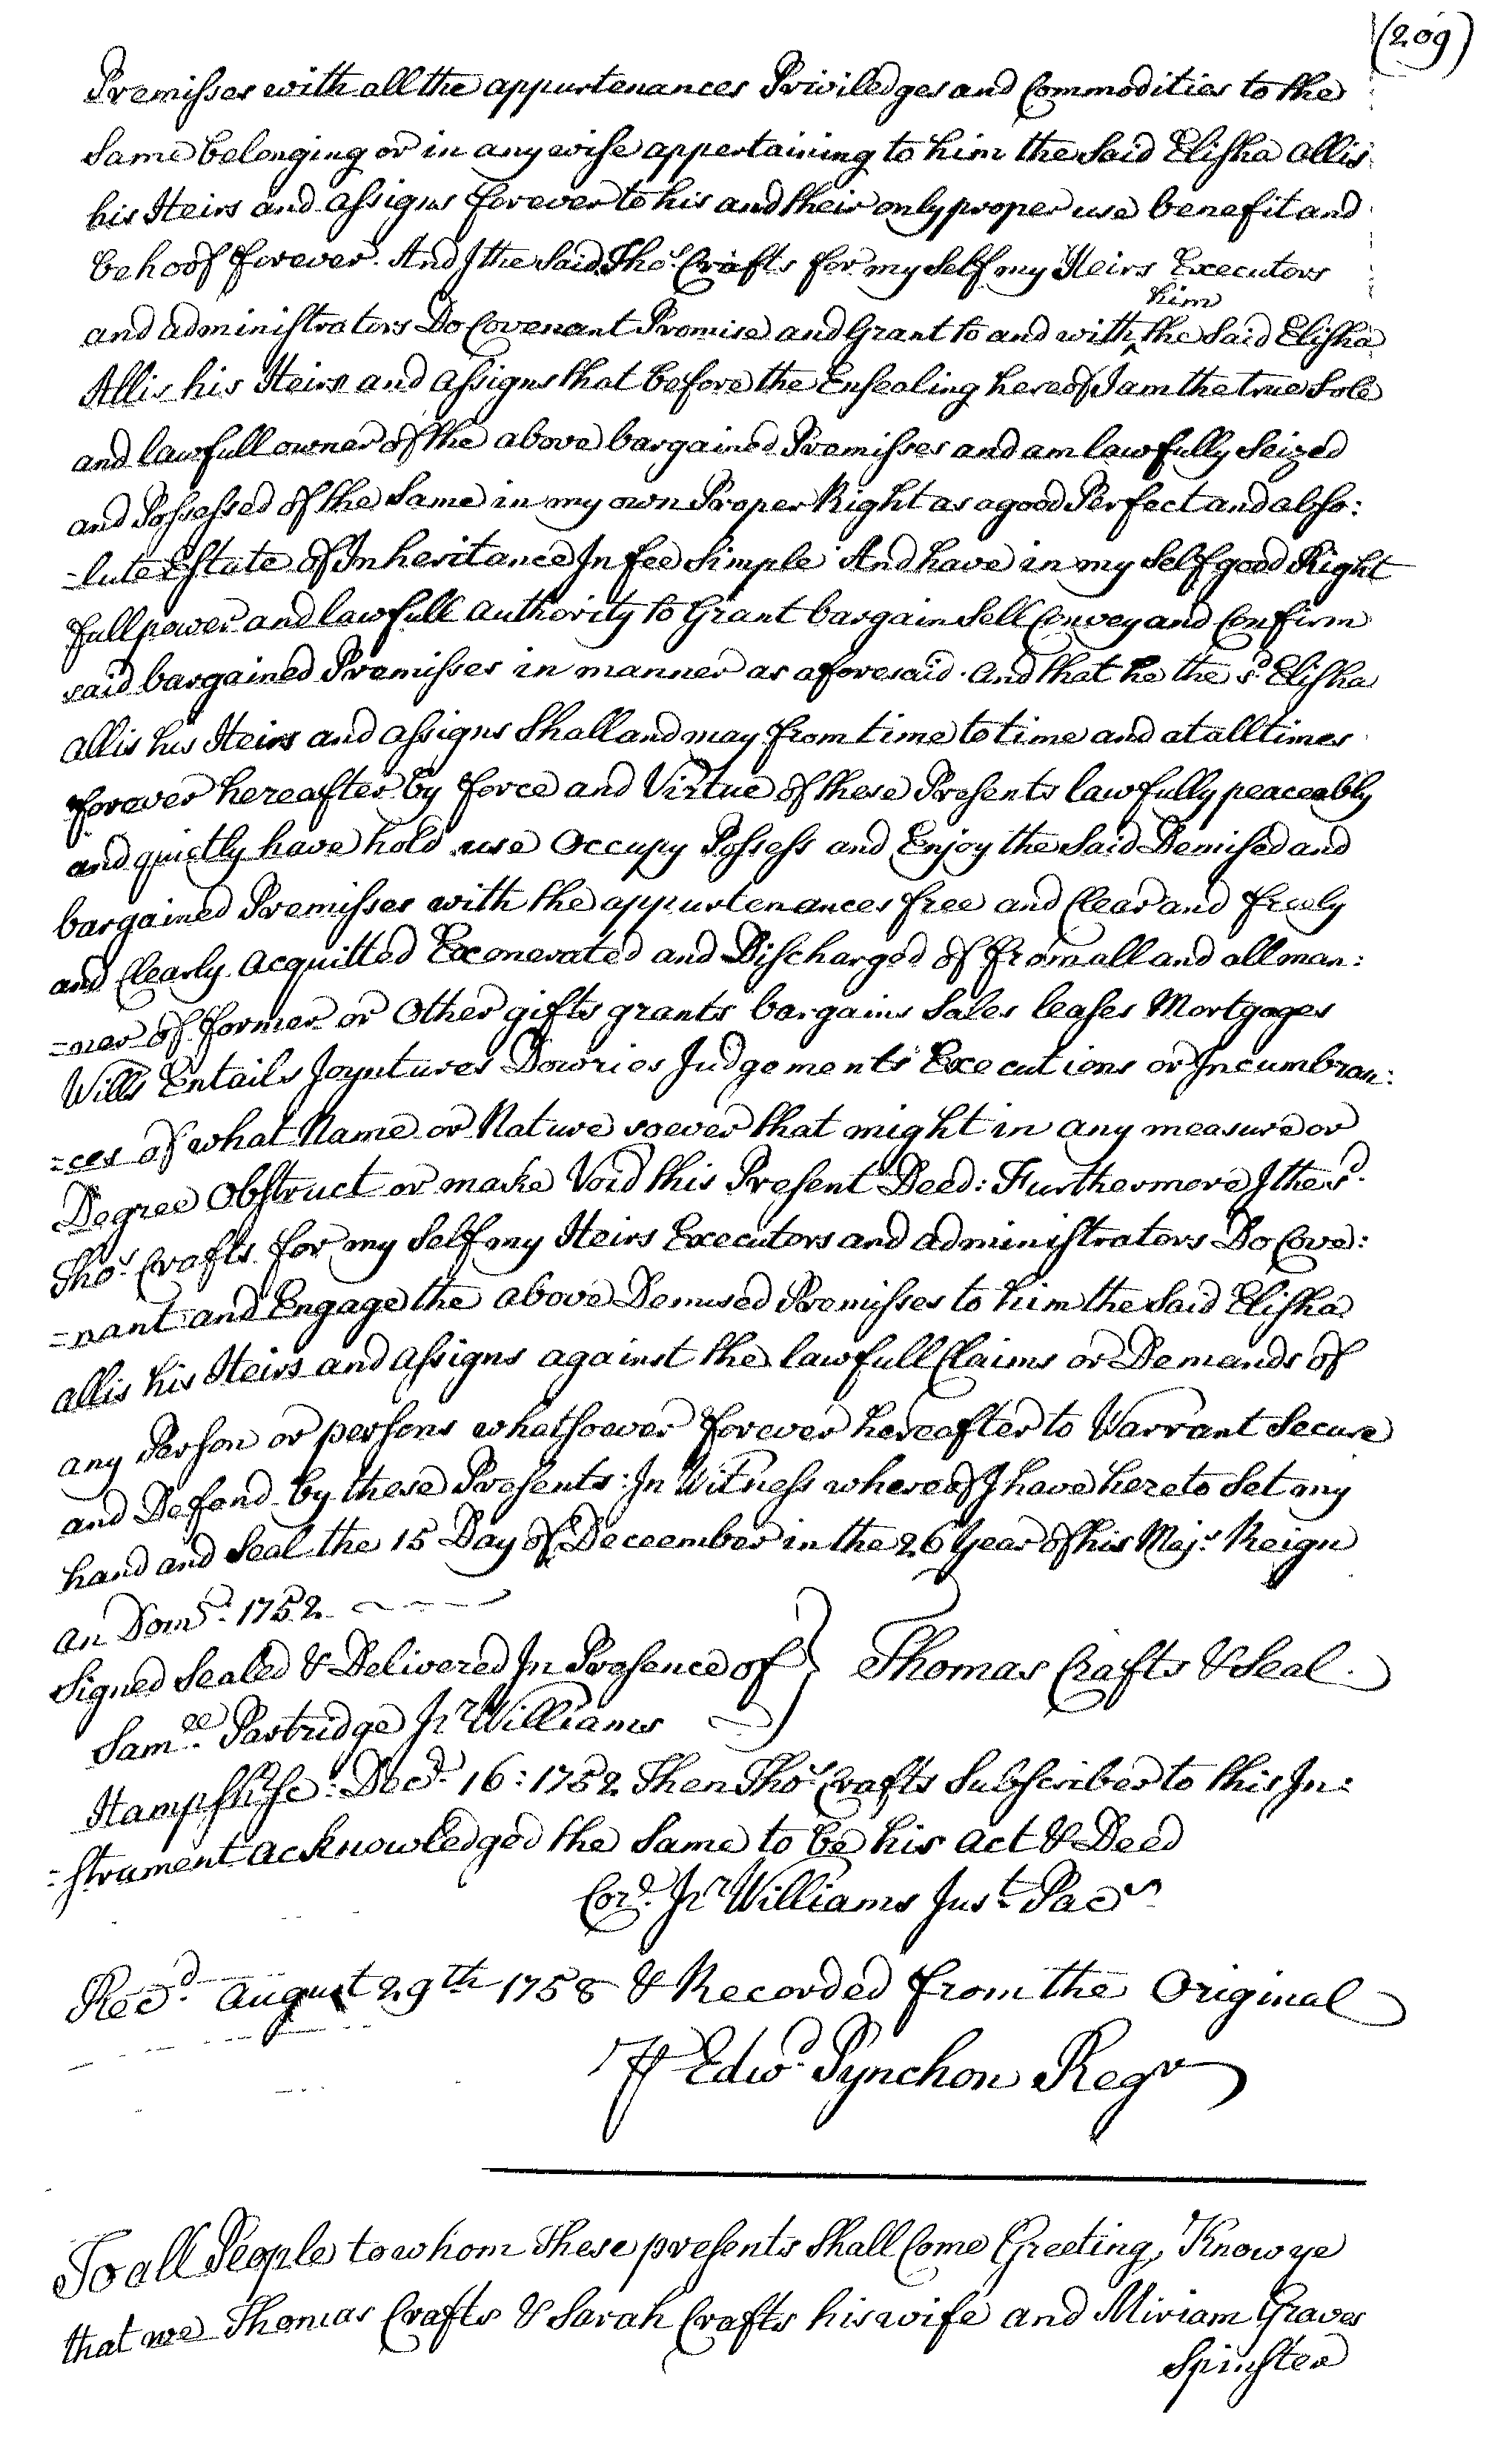 (209)
Premisses with all the appurtenances Priviledges and Commodities to the
Same belonging or in any wise appertaining to him the Said Elisha allis
his Heirs and assigns forever to his and their only proper use benefit and
behoof forever. And I the Said Thos. Crafts for my Self my Heirs Executors
him
and administrators Do Covenant Promise and Grant to and with ^ the Said Elisha
Allis his Heirs and assigns that before the Ensealing hereof I am the true Sole
and lawfull owner of the above bargained Premisses and am lawfully Seized
and Possessed of the Same in my own Proper Right as a good Perfect and abso:
=lute Estate of Inheritance In fee Simple And have in my Self good Right
full power and lawfull authority to Grant bargain Sell Convey and Confirm
said bargained Premisses in manner as aforesaid. and that he the sd. Elisha
allis his Heirs and assigns Shall and may from time to time and at all times
forever hereafter by force and Virtue of these Presents lawfully peaceably
and quietly have hold use Occupy Possess and Enjoy the Said Demised and
bargained Premisses with the appurtenances free and Clear and freely
and Clearly acquitted Exonerated and Discharged of from all and all man:
=ner of former or Other gifts grants bargains Sales leases Mortgages
Wills Entails Joyntures Dowries Judgements Executions or Incumbran:
=ces of what Name or Nature soever that might in any measure or
Degree Obstruct or make Void this Present Deed: Furthermore I the sd.
Thos. Crafts for my Self my Heirs Executors and administrators Do Cove:
=nant and Engage the above Demised Premisses to him the Said Elisha
allis his Heirs and assigns against the lawfull Claims or Demands of
any Person or persons whatsoever forever hereafter to Warrant Secure
and Defend by these Presents: In Witness whereof I have hereto Set my
hand and Seal the 15 Day of Deceember in the 26 Year of his Majs. Reign
an Domi. 1752
Signed Sealed & Delivered In Presence of } Thomas Crafts & Seal.
Samll. Partridge Jr Williams
Hampshse: Decr. 16: 1752 Then Thos. Crafts Subscriber to this In:
=strument acknowledged the Same to be his act & Deed
Cord. Jr Williams Just. Pac
Recd. august 29th 1758 & Recorded from the Original
Edwd. Pynchon Regr
To all People to whom These presents Shall Come Greeting, Know ye
that we Thomas Crafts & Sarah Crafts his wife and Miriam Graves
Spinster